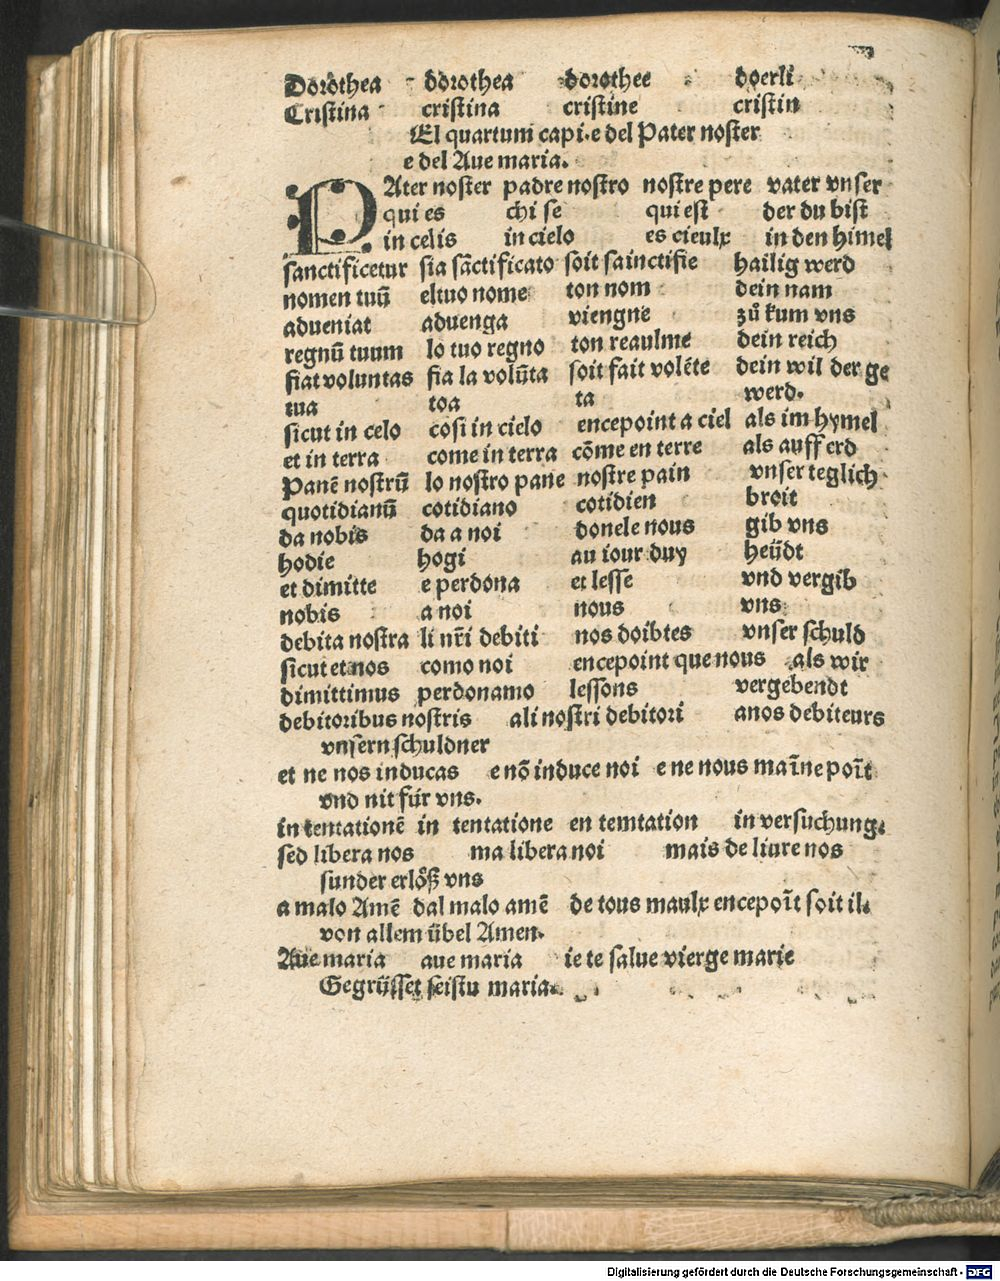 Dorothea dorothea dorothee doerli
Cristina cristina cristine cristin
El quartum capi.e del Pater noster
e del Aue maria.
PAter noster padre nostro nostre pere vater vnser
qui es chi se qui est der du bist
in celis in cielo es cieulx in den himel
sanctificetur sia sãctificato soit sainctifie hailig werd
nomen tuũ eltuo nome ton nom dein nam
adueniat aduenga viengne zů kum vns
regnũ tuum lo tuo regno ton reaulme dein reich
fiat voluntas fia la volũta soit fait volẽte dein wil der ge
tua toa ta werd.
sicut in celo cosi in cielo encepoint a ciel als im hymel
et in terra come in terra cõme en terre als auff erd
Panẽ nostrũ lo nostro pane nostre pain vnser teglich
quotidianũ cotidiano cotidien broit
da nobis da a noi donele nous gib vns
hodie hogi au iour duy heüdt
et dimitte e perdona et lesse vnd vergib
nobis a noi nous vns
debita nostra li nr̃i debiti nos doibtes vnser schuld
sicut et nos como noi encepoint que nous als wir
dimittimus perdonamo lessons vergebendt
debitoribus nostris ali nostri debitori anos debiteurs
vnsern schuldner
et ne nos inducas e nõ induce noi e ne nous maĩne poĩt
vnd nit für vns.
in temtationẽ in tentatione en temtation in versuchung.
sed libera nos ma libera noi mais de liure nos
sunder erlöß vns
a malo Amẽ dal malo amẽ de tous maulx encepoĩt soit il.
von allem übel Amen.
Aue maria aue maria ie te salue vierge marie
Gegrüsset seistu maria.
Digitalisierung gefördert durch die Deutsche Forschungsgemeinschaft - DFG